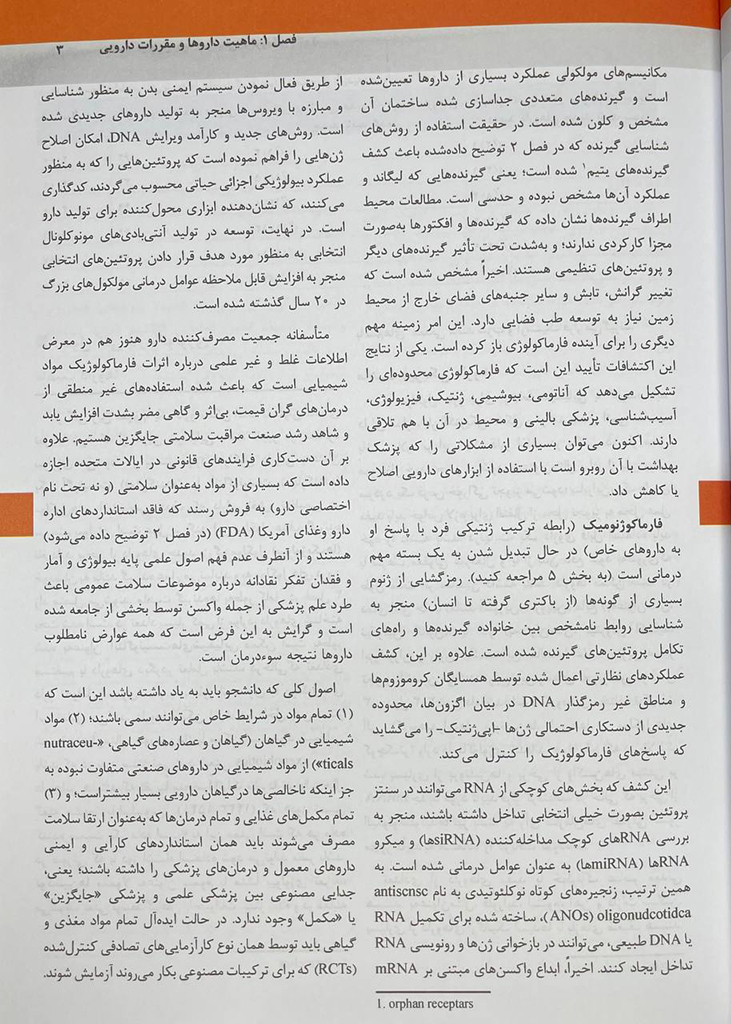 فصل ۱: ماهیت داروها و مقررات دارویی ۳
مکانیسم‌های مولکولی عملکرد بسیاری از داروها تعیین‌شده
است و گیرنده‌های متعددی جداسازی شده ساختمان آن
مشخص و کلون شده است. در حقیقت استفاده از روش‌های
شناسایی گیرنده که در فصل ۲ توضیح داده‌شده باعث کشف
گیرنده‌های یتیم۱ شده است؛ یعنی گیرنده‌هایی که لیگاند و
عملکرد آن‌ها مشخص نبوده و حدسی است. مطالعات محیط
اطراف گیرنده‌ها نشان داده که گیرنده‌ها و افکتورها به‌صورت
مجزا کارکردی ندارند؛ و به‌شدت تحت تأثیر گیرنده‌های دیگر
و پروتئین‌های تنظیمی هستند. اخیراً مشخص شده است که
تغییر گرانش، تابش و سایر جنبه‌های فضای خارج از محیط
زمین نیاز به توسعه طب فضایی دارد. این امر زمینه مهم
دیگری را برای آینده فارماکولوژی باز کرده است. یکی از نتایج
این اکتشافات تأیید این است که فارماکولوژی محدوده‌ای را
تشکیل می‌دهد که آناتومی، بیوشیمی، ژنتیک، فیزیولوژی،
آسیب‌شناسی، پزشکی بالینی و محیط در آن با هم تلاقی
دارند. اکنون می‌توان بسیاری از مشکلاتی را که پزشک
بهداشت با آن روبرو است با استفاده از ابزارهای دارویی اصلاح
یا کاهش داد.
فارماکوژنومیک (رابطه ترکیب ژنتیکی فرد با پاسخ او
به داروهای خاص) در حال تبدیل شدن به یک بسته مهم
درمانی است (به بخش ۵ مراجعه کنید). رمزگشایی از ژنوم
بسیاری از گونه‌ها (از باکتری گرفته تا انسان) منجر به
شناسایی روابط نامشخص بین خانواده گیرنده‌ها و راه‌های
تکامل پروتئین‌های گیرنده شده است. علاوه بر این، کشف
عملکردهای نظارتی اعمال شده توسط همسایگان کروموزوم‌ها
و مناطق غیر رمزگذار DNA در بیان اگزون‌ها، محدوده
جدیدی از دستکاری احتمالی ژن‌ها -اپی‌ژنتیک- را می‌گشاید
که پاسخ‌های فارماکولوژیک را کنترل می‌کند.
این کشف که بخش‌های کوچکی از RNA می‌توانند در سنتز
پروتئین بصورت خیلی انتخابی تداخل داشته باشند، منجر به
بررسی RNAهای کوچک مداخله‌کننده (siRNAها) و میکرو
RNAها (miRNAها) به عنوان عوامل درمانی شده است. به
همین ترتیب، زنجیره‌های کوتاه نوکلئوتیدی به نام antiscnsc
oligonudcotidca (ANOs)، ساخته شده برای تکمیل RNA
یا DNA طبیعی، می‌توانند در بازخوانی ژن‌ها و رونویسی RNA
تداخل ایجاد کنند. اخیراً، ابداع واکسن‌های مبتنی بر mRNA
1. orphan receptars
از طریق فعال نمودن سیستم ایمنی بدن به منظور شناسایی
و مبارزه با ویروس‌ها منجر به تولید داروهای جدیدی شده
است. روش‌های جدید و کارآمد ویرایش DNA، امکان اصلاح
ژن‌هایی را فراهم نموده است که پروتئین‌هایی را که به منظور
عملکرد بیولوژیکی اجزائی حیاتی محسوب می‌گردند، کدگذاری
می‌کنند، که نشان‌دهنده ابزاری محول‌کننده برای تولید دارو
است. در نهایت، توسعه در تولید آنتی‌بادی‌های مونوکلونال
انتخابی به منظور مورد هدف قرار دادن پروتئین‌های انتخابی
منجر به افزایش قابل ملاحظه عوامل درمانی مولکول‌های بزرگ
در ۲۰ سال گذشته شده است.
متأسفانه جمعیت مصرف‌کننده دارو هنوز هم در معرض
اطلاعات غلط و غیر علمی درباره اثرات فارماکولوژیک مواد
شیمیایی است که باعث شده استفاده‌های غیر منطقی از
درمان‌های گران قیمت، بی‌اثر و گاهی مضر بشدت افزایش یابد
و شاهد رشد صنعت مراقبت سلامتی جایگزین هستیم. علاوه
بر آن دست‌کاری فرایندهای قانونی در ایالات متحده اجازه
داده است که بسیاری از مواد به‌عنوان سلامتی (و نه تحت نام
اختصاصی دارو) به فروش رسند که فاقد استانداردهای اداره
دارو وغذای آمریکا (FDA) (در فصل ۲ توضیح داده می‌شود)
هستند و از آنطرف عدم فهم اصول علمی پایه بیولوژی و آمار
و فقدان تفکر نقادانه درباره موضوعات سلامت عمومی باعث
طرد علم پزشکی از جمله واکسن توسط بخشی از جامعه شده
است و گرایش به این فرض است که همه عوارض نامطلوب
داروها نتیجه سوءدرمان است.
اصول کلی که دانشجو باید به یاد داشته باشد این است که
(۱) تمام مواد در شرایط خاص می‌توانند سمی باشند؛ (۲) مواد
شیمیایی در گیاهان (گیاهان و عصاره‌های گیاهی، «nutraceu-
ticals») از مواد شیمیایی در داروهای صنعتی متفاوت نبوده به
جز اینکه ناخالصی‌ها درگیاهان دارویی بسیار بیشتراست؛ و (۳)
تمام مکمل‌های غذایی و تمام درمان‌ها که به‌عنوان ارتقا سلامت
مصرف می‌شوند باید همان استانداردهای کارآیی و ایمنی
داروهای معمول و درمان‌های پزشکی را داشته باشند؛ یعنی،
جدایی مصنوعی بین پزشکی علمی و پزشکی «جایگزین»
یا «مکمل» وجود ندارد. در حالت ایده‌آل تمام مواد مغذی و
گیاهی باید توسط همان نوع کارآزمایی‌های تصادفی کنترل‌شده
(RCTs) که برای ترکیبات مصنوعی بکار می‌روند آزمایش شوند.